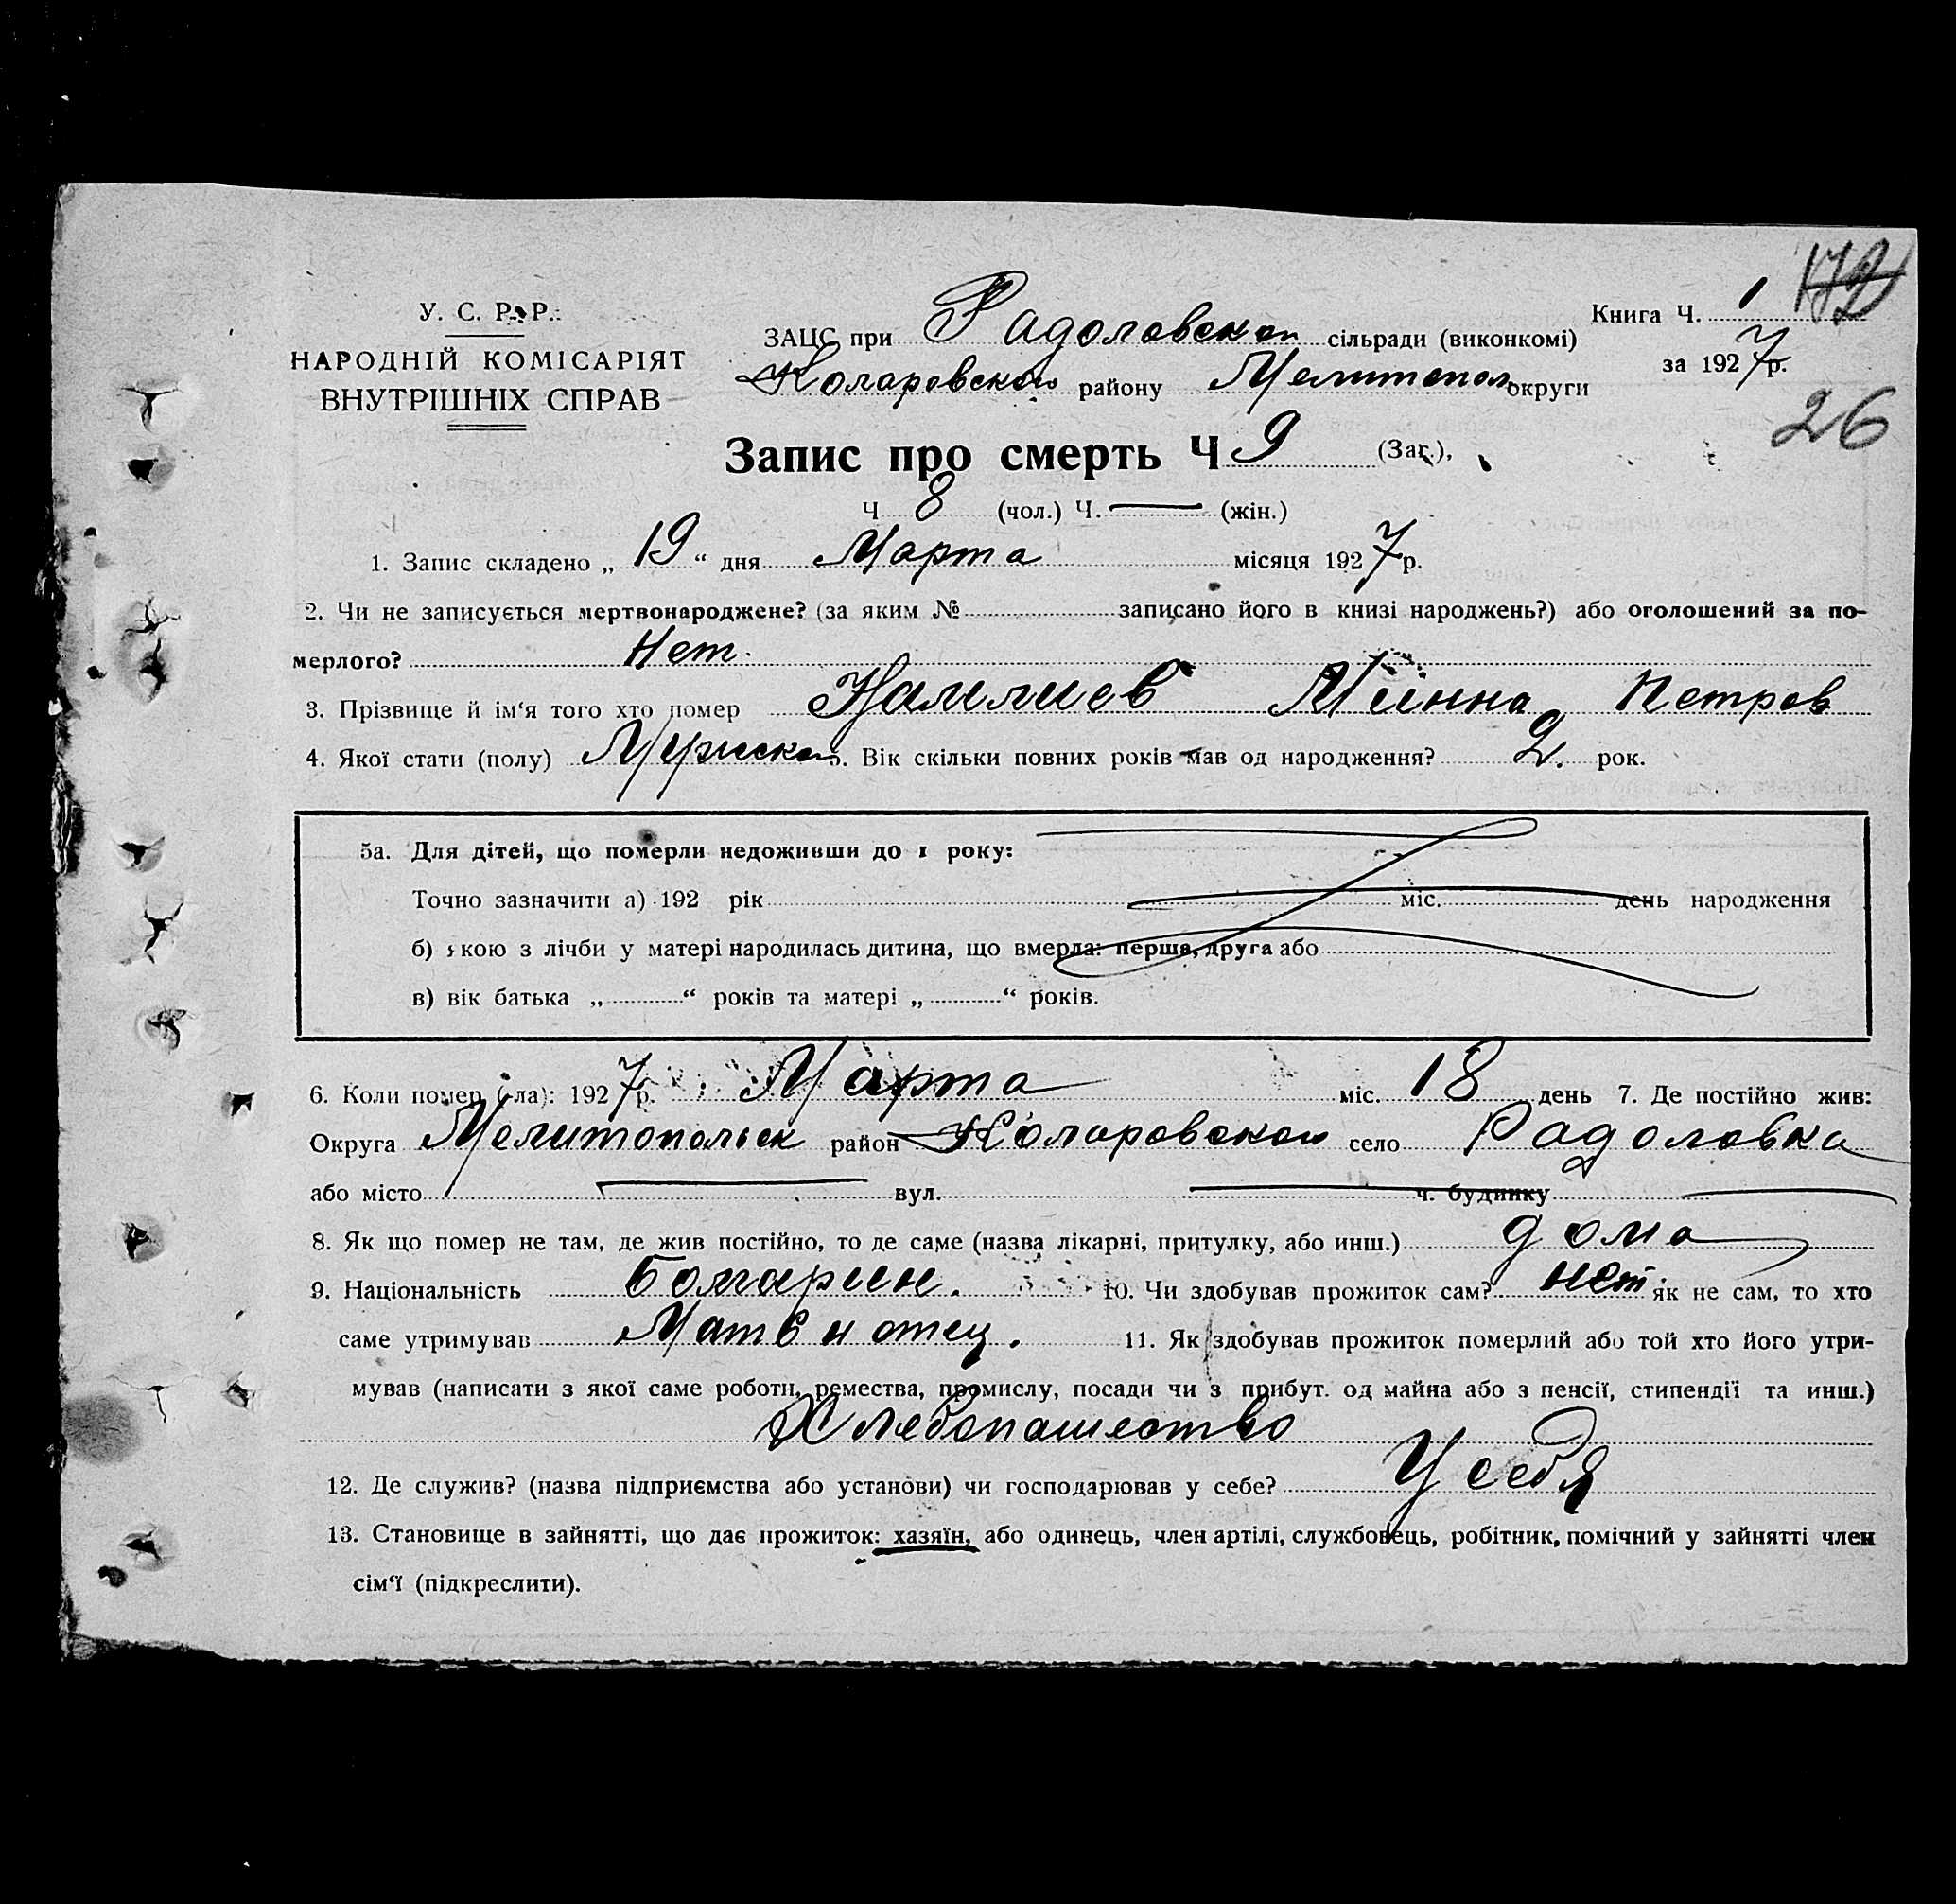 У. С. Р. Р.
НАРОДНІЙ КОМІСАРІЯТ
ВНУТРІШНІХ СПРАВ
ЗАЦС при Радоловской сільради (виконкомі)
Коларовского району Мелитопол округи
Книга Ч. 1 172
за 1927 р.
26
Запис про смерть Ч 9 (Заг.),
Ч 8 (чол.) Ч. — (жін.)
1. Запис складено „ 19 “ дня Марта місяця 1927 р.
2. Чи не записується мертвонароджене? (за яким № записано його в книзі народжень?) або оголошений за по-
мерлого? Нет.
3. Прізвище й ім‘я того хто помер Минна Петров
4. Якої стати (полу) Мужской 5. Вік скільки повних років мав од народження? 2. рок.
5а. Для дітей, що померли недоживши до 1 року:
Точно зазначити а) 192 рік міс. день народження
б) якою з лічби у матері народилась дитина, що вмерла: перша, друга або
в) вік батька „ “ років та матері „ “ років.
6. Коли помер (-ла): 1927 р. Марта міс. 18 день 7. Де постійно жив:
Округа Мелитопольск район Коларовском село Радоловка
або місто — вул. — ч. будинку —
8. Як що помер не там, де жив постійно, то де саме (назва лікарні, притулку, або инш.) дома
9. Національність Болгарин. 10. Чи здобував прожиток сам? нет. як не сам, то хто
саме утримував Мать и отец. 11. Як здобував прожиток померлий або той хто його утри-
мував (написати з якої саме роботи, ремества, промислу, посади чи з прибут. од майна або з пенсії, стипендії та инш.)
Хлебопашество
12. Де служив? (назва підприємства або установи) чи господарював у себе? У себя
13. Становище в зайнятті, що дає прожиток: хазяїн, або одинець, член артілі, службовець, робітник, помічний у зайнятті член
сім‘ї (підкреслити).